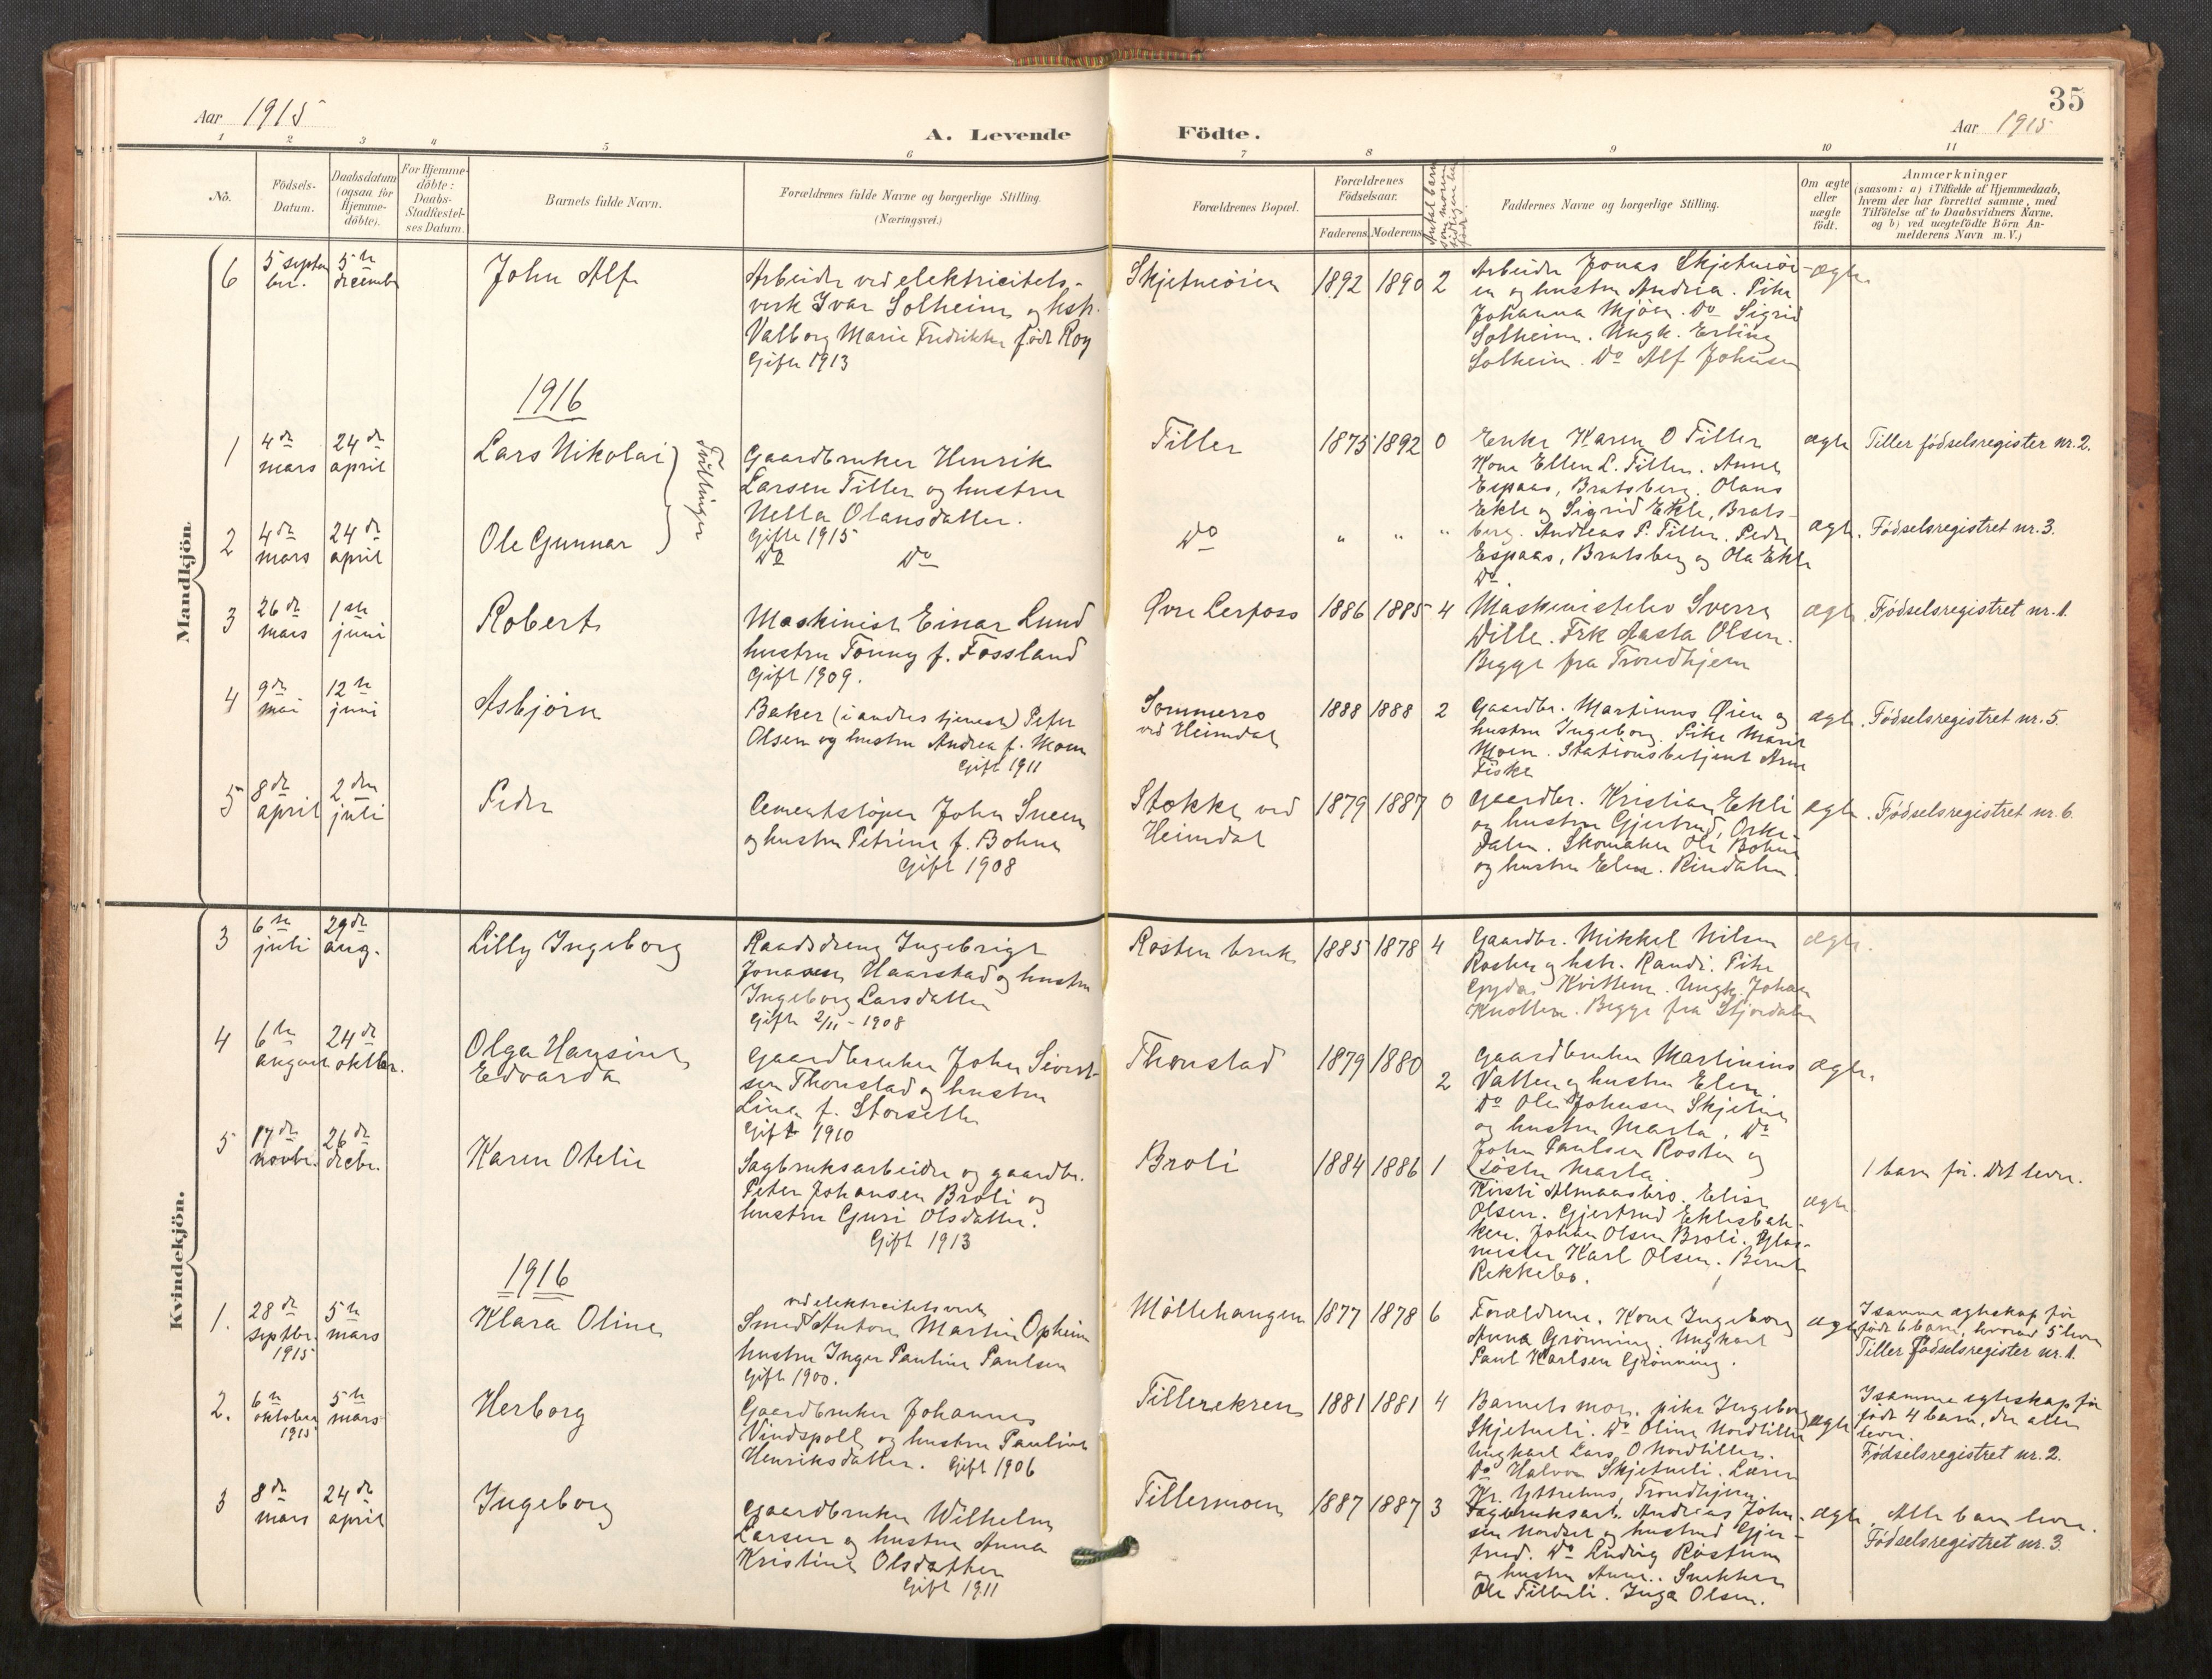 35
Aar 1915
A. Levende Födte.
Aar 1915
1 2 3 4 5 6 7 8 9 10 11
No.
Födsels-
Datum.
Daabsdatum
(ogsaa for
Hjemme-
döbte).
For Hjemme-
döbte:
Daabs-
Stadfæstel-
ses Datum.
Barnets fulde Navn.
Forældrenes fulde Navne og borgerlige Stilling.
(Næringsvei.)
Forældrenes Bopæl.
Forældrenes
Födselsaar.
Faderens. Moderens.
Antal barn
som moren
tidligere har
född
Faddernes Navne og borgerlige Stilling.
Om ægte
eller
uægte
födt.
Anmærkninger
(saasom: a) i Tilfælde af Hjemmedaab,
hvem der har forrettet samme, med
Tilföielse af to Daabsvidners Navne,
og b) ved uægtefödte Börn An-
melderens Navn m. V.)
Mandkjön.
6
5 septem
ber.
5te
decembr
John Alf
Arbeider ved elektricitets-
verk Ivar Solheim og hstr.
Valborg Marie Fredrikke født Roy
Gifte 1913
Skjetneöien
1892 1890 2
Arbeider Jonas Skjetneöi-
en og hustru Andrea. Pike
Johanna Mjöen. Do Sigrid
Solheim. Ungk. Erling
Solheim. Do Alf Johnsen
ægte
1916
1
4de
mars
24de
april
Lars Nikolai
Tvillinger
Gaardbruker Henrik
Larsen Tiller og hustru
Nella Olausdatter.
Gifte 1915
Tiller
1875 1892 0
Enke Karen O Tiller
Kone Ellen L. Tiller. Anne
Espaas, Bratsberg. Olaus
Ekle og Sigrid Ekle, Brats-
berg. Andreas P. Tiller. Peder
Espaas, Bratsberg og Ola Ekle
Do.
ægte
Tiller födselsregister nr. 2.
2
4de
mars
24de
april
Ole Gunnar
Do Do
Do
" " "
ægte.
Födselsregistret nr. 3.
3
26de
mars
1ste
juni
Robert
Maskinist Einar Lund
hustru Tonny f. Fossland
Gift 1909.
Øvre Lerfoss
1886 1885 4
Maskinistelev Sverre
Wille. Frk Aasta Olsen.
Begge fra Trondhjem
ægte
Födselsregistret nr. 1.
4
9de
mai
12te
juni
Asbjörn
Baker (i andres tjeneste) Peter
Olsen og hustru Andrea f. Moen
Gift 1911
Sommerro
ved Heimdal
1888 1888 2
Gaardbr. Martinus Øien og
hustru Ingeborg. Pike Marit
Moen. Stationsbetjent Arne
Fiske
ægte.
Födselsregistret nr. 5.
5
8de
april
2den
juli
Peder
Cementstöper John Sneen
og hustru Petrine f. Bohne
Gift 1908
Stokke ved
Heimdal
1879 1887 0
Gaardbr. Kristian Ekli
og hustru Gjertrud, Orke-
dalen. Skomaker Ole Bohne
og hustru Elen. Rindalen.
ægte.
Födselsregistret nr. 6.
Kvindekjön.
3
6te
juli
29de
aug.
Lilly Ingeborg
Raadsdreng Ingebrigt
Jonassen Haarstad og hustru
Ingeborg Larsdatter
Gifte 2/11 - 1908
Rosten bruk
1885 1878 4
Gaardbr. Mikkel Nilsen
Rosten og hstr. Randi. Pike
Gyda Kvittem. Ungk. Johan
Knotten. Begge fra Stjordalen
ægte.
4
6te
august
24de
oktbr.
Olga Hansine
Edvarda
Gaardbruker John Sivert-
sen Thonstad og hustru
Line f. Storsette
Gift 1910
Thonstad
1879 1880 2
Gaardbruker Martinius
Vatten og hustru Elen
Do Ole Johnsen Skjetne
og hustru Marta. Do
John Paulsen Rosten og
söster Marta.
ægte.
5
17de
novbr.
26de
decbr.
Karen Otelie
Sagbruksarbeider og gaardbr.
Peter Johansen Broli og
hustru Guri Olsdatter.
Gift 1913
Broli
1884 1886 1
Kirsti Almaasbro. Elise
Olsen. Gjertrud Eklesbak-
ken. Johan Olsen Broli. Glas-
mester Karl Olsen. Bernt
Rekkebo.
ægte
1 barn för. Det lever.
1916
1.
28de
septbr.
1915
5te
mars
Klara Oline
ved elektricitetsverk
Smed Anton Martin Opheim
hustru Inger Pauline Paulsen
Gift 1900.
Möllehaugen
1877 1878 6
Forældrene. Kone Ingeborg
Anna Grönning. Ungkarl
Paul Karlsen Grönning.
ægte
I samme egteskap för
födt 6 barn, hvorav 5 lever
Tiller födselsregister nr. 1.
2.
6te
oktober
1915
5te
mars
Herborg
Gaardbruker Johannes
Vindspoll og hustru Pauline
Henriksdatter. Gift 1906
Tillerekren
1881 1881 4
Barnets mor. pike Ingeborg
Skjetneli. Do Oline Nordtiller
Ungkarl Lars O Nordtiller.
Do Halvor Skjetneli. Lærer
Kr. Yttrehus, Trondhjem.
ægte
I samme egteskap för
födt 4 barn, der alle
lever.
Födselsregistret nr. 2.
3
8de
mars
24de
april
Ingeborg
Gaardbruker Wilhelm
Larsen og hustru Anna
Kristine Olsdatter
Gift 1911
Tillermoen
1887 1887 3
Sagbruksarb. Andreas John-
sen Nordset og hustru Gjer-
trud. Do Ludvig Röstum
og hustru Anne. Snekker
Ole Tillerli. Inga Olsen.
ægte.
Alle barn lever.
Födselsregistret nr. 3.